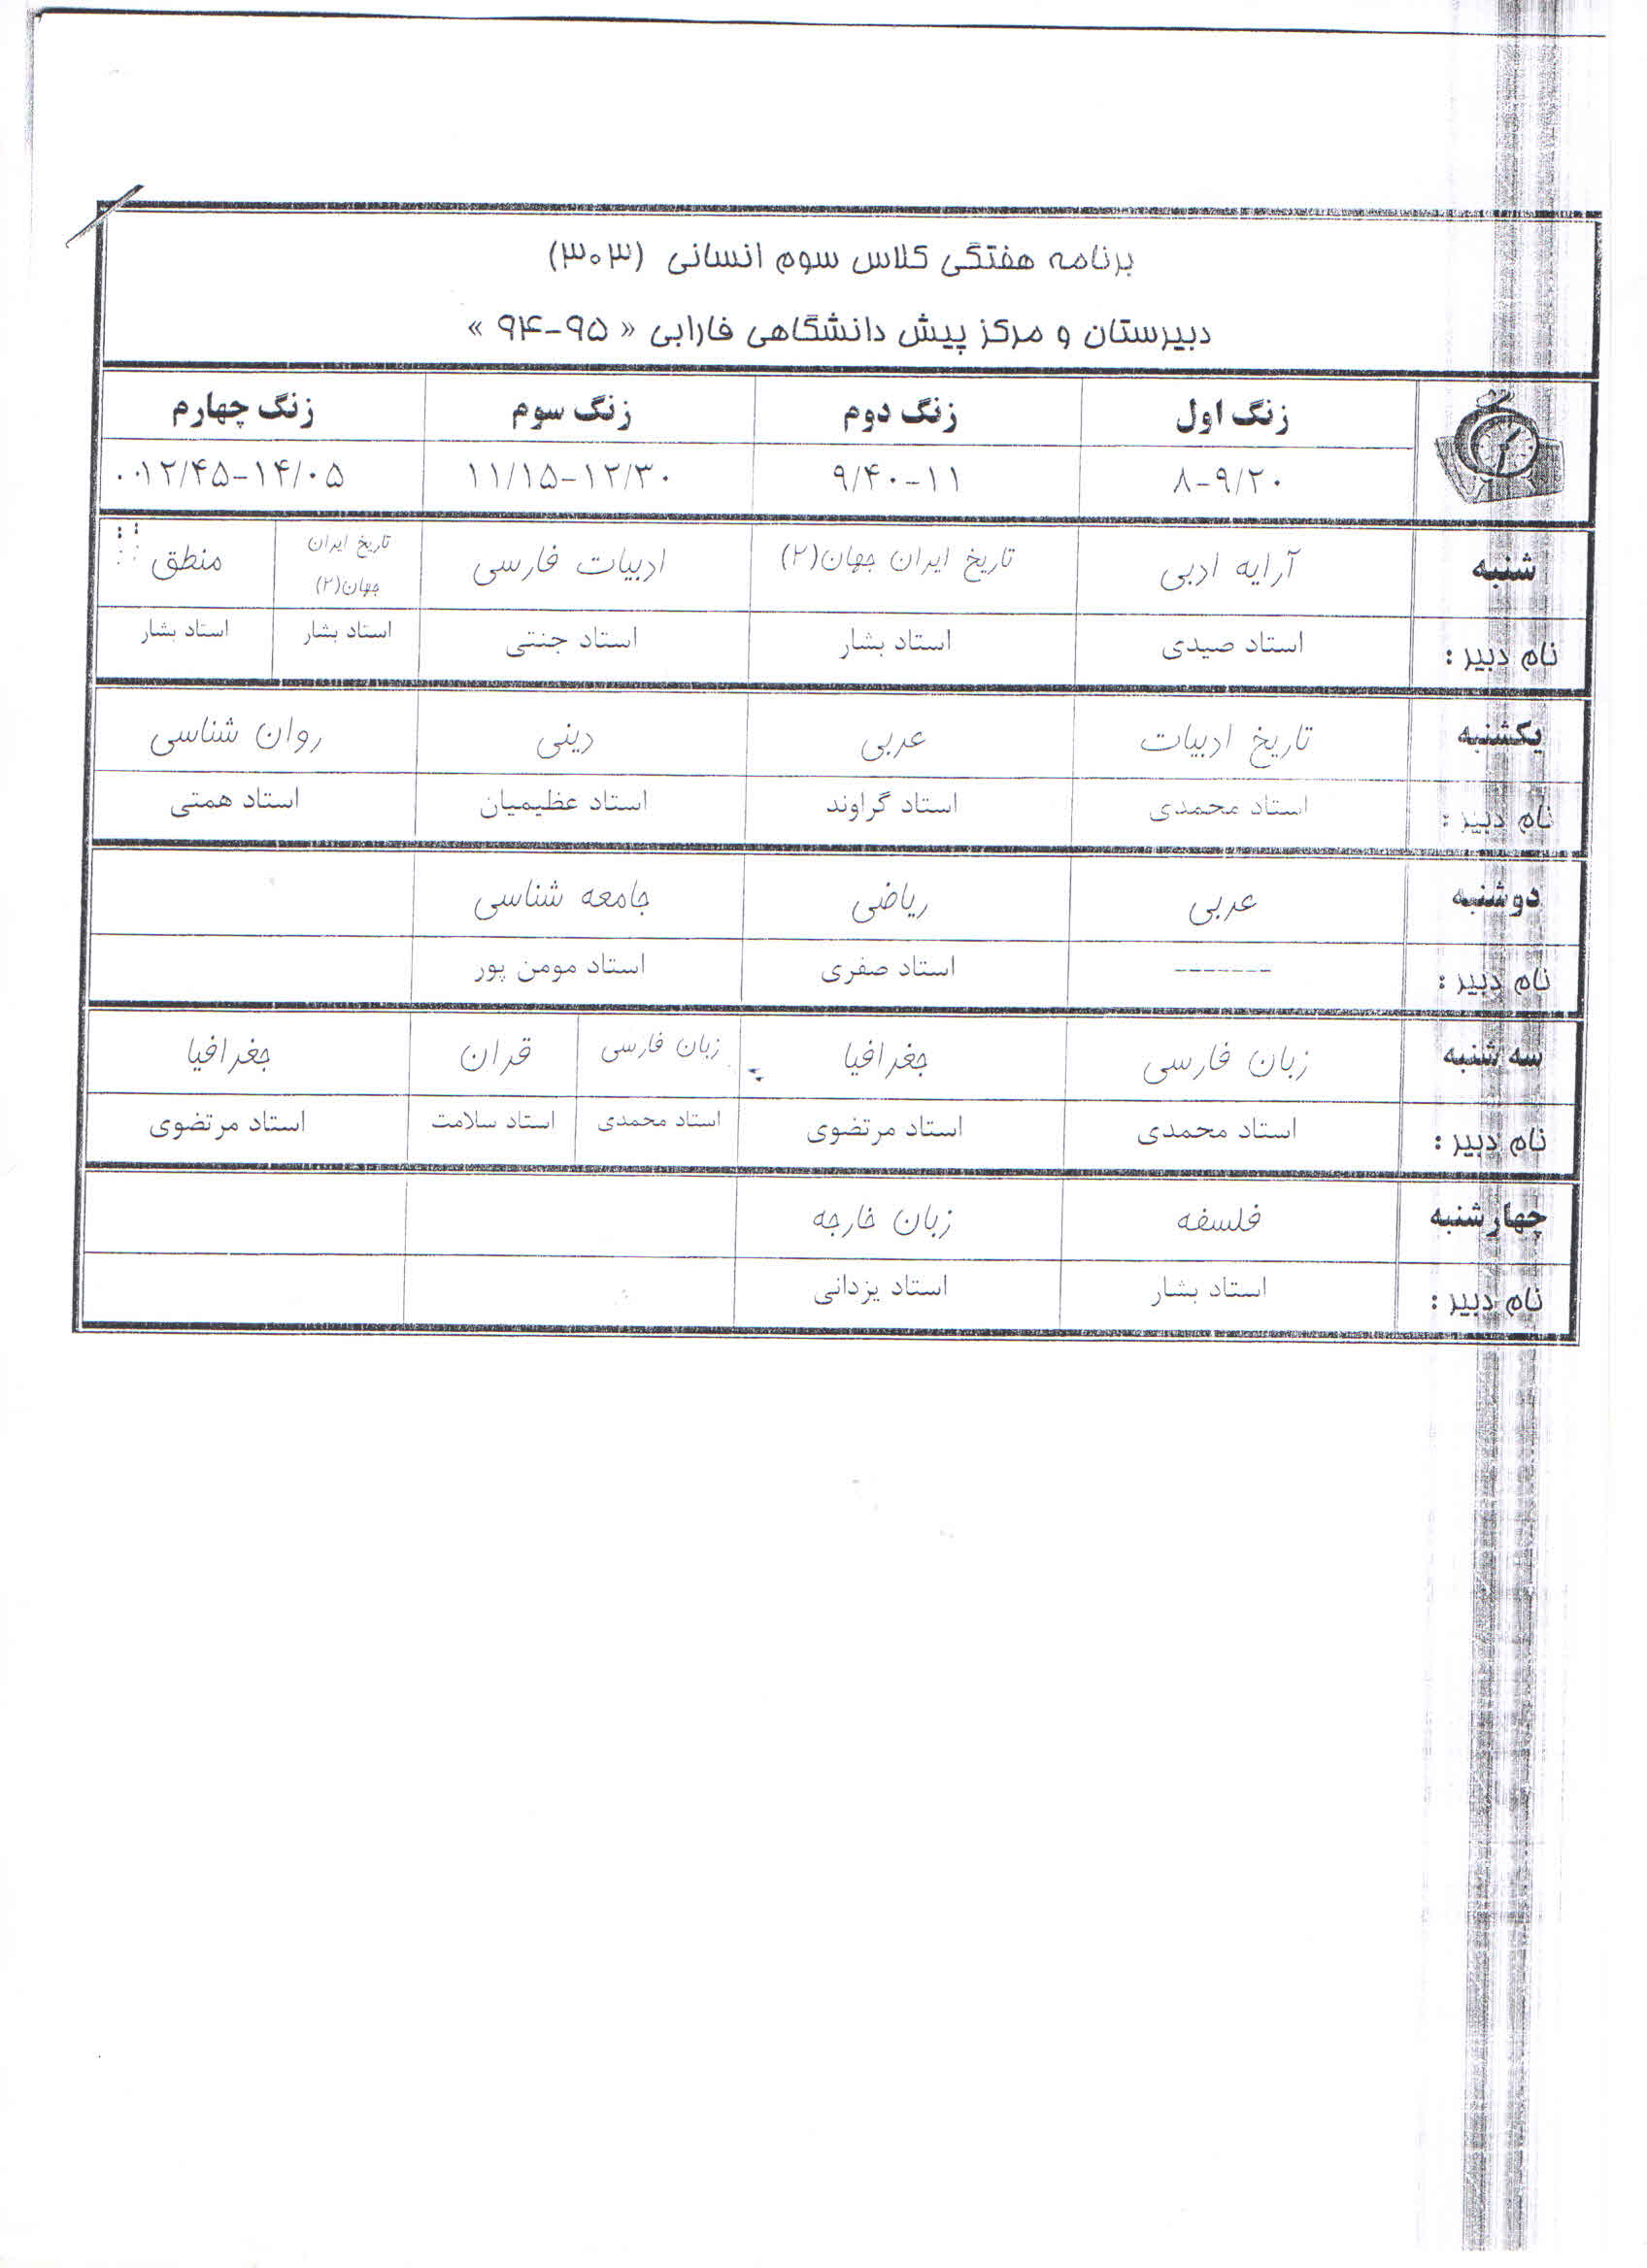 برنامه هفتگی کلاس سوم انسانی (۳۰۳)
دبیرستان و مرکز پیش دانشگاهی فارابی « ۹۵-۹۴ »
زنگ اول زنگ دوم زنگ سوم زنگ چهارم
۸-۹/۲۰ ۹/۴۰-۱۱ ۱۱/۱۵-۱۲/۳۰ ۱۲/۴۵-۱۴/۰۵
شنبه آرایه ادبی تاریخ ایران جهان(۲) ادبیات فارسی تاریخ ایران جهان(۲) منطق
نام دبیر : استاد صیدی استاد بشار استاد جنتی استاد بشار استاد بشار
یکشنبه تاریخ ادبیات عربی دینی روان شناسی
نام دبیر : استاد محمدی استاد گراوند استاد عظیمیان استاد همتی
دوشنبه عربی ریاضی جامعه شناسی
نام دبیر : ------- استاد صفری استاد مومن پور
سه شنبه زبان فارسی جغرافیا زبان فارسی قران جغرافیا
نام دبیر : استاد محمدی استاد مرتضوی استاد محمدی استاد سلامت استاد مرتضوی
چهارشنبه فلسفه زبان خارجه
نام دبیر : استاد بشار استاد یزدانی